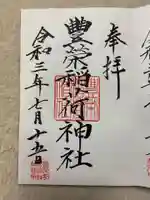 奉拝
豊栄稲荷神社
令和三年七月十五日